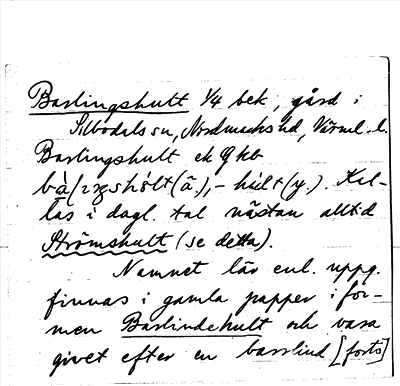 Barlingshult 1/4 bek, gård i
Silbodals sn, Nordmarks hd, Värml. l.
Barlingshult ek GKB
hult (ä.), - hult (y.). Kal-
las i dagl. tal nästan alltid
Strömshult (se detta).
Namnet lär enl. uppg.
finnas i gamla papper i for-
men Barlindehult och vara
givet efter en barrlind [forts]